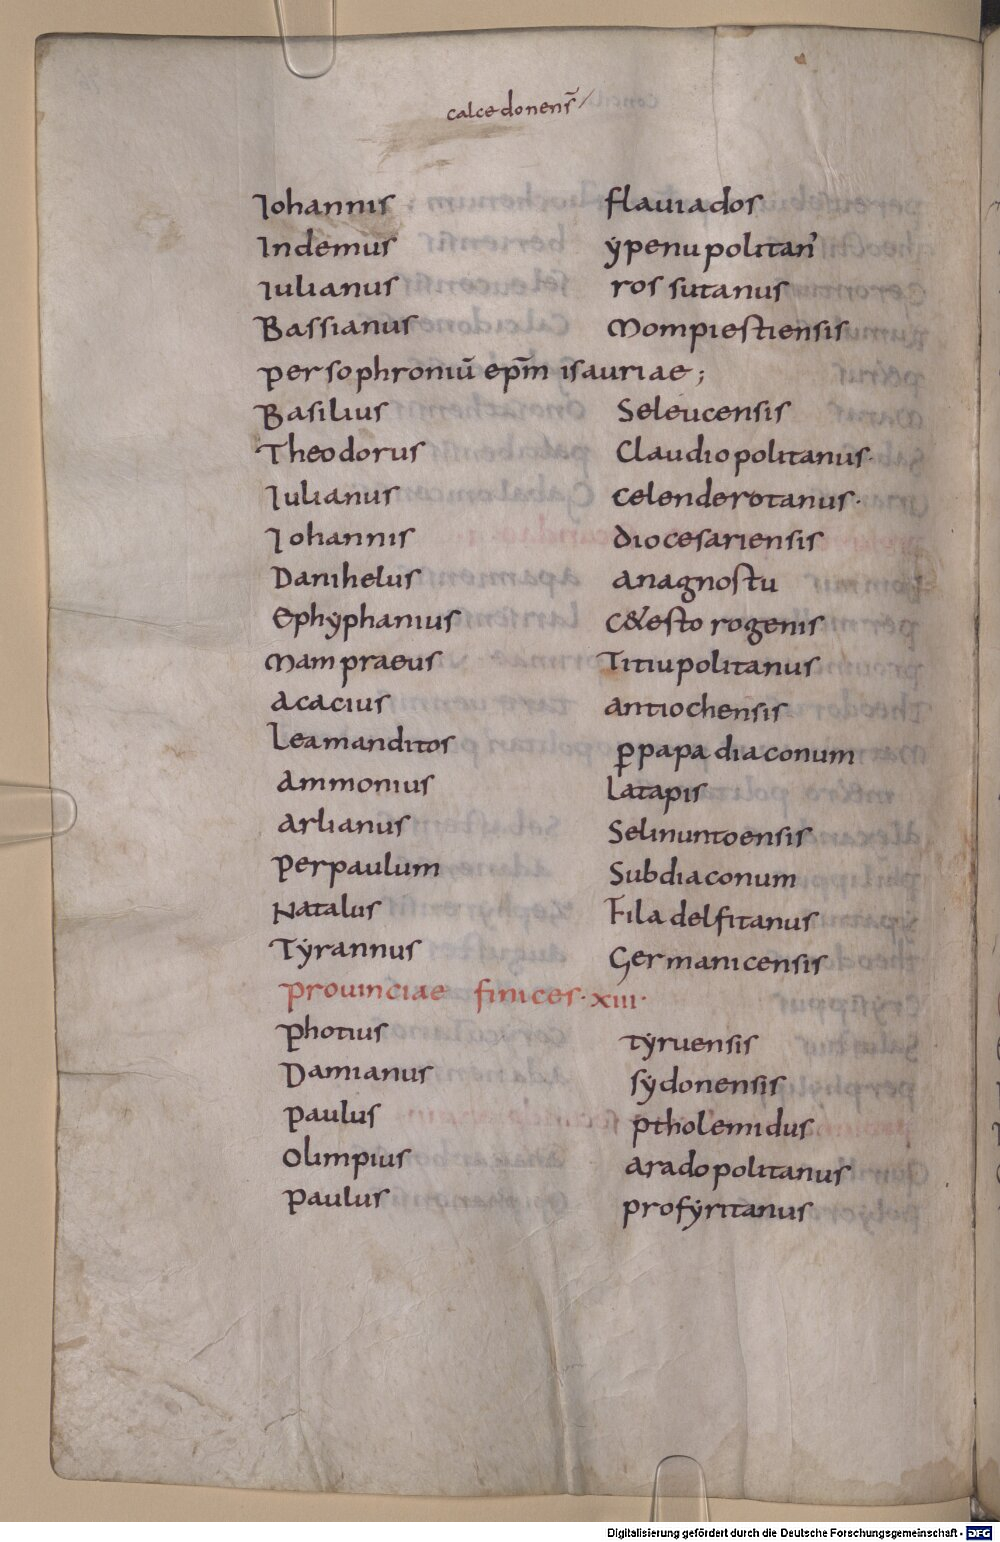 calcedonens̄
Iohannis flauiados
Indemus ẏpenupolitan̓
Iulianus ros sutanus
Bassianus Mompiestiensis
persophroniū ep̄m isauriae;
Basilius Seleucensis
Theodorus Claudiopolitanus·
Iulianus celenderotanus·
Iohannis diocesariensis
Danihelus anagnostu
Ephẏphanius c&esto rogenis
Mampraeus Titiupolitanus
acacius antiochensis
Leamanditos ꝑpapa diaconum
ammonius Latapis
arlianus Selinuntoensis
perpaulum Subdiaconum
Natalus Filadelfitanus
Tẏrannus Germanicensis
prouinciae finices·xiii·
photius tẏruensis
Damianus sẏdonensis
paulus ptholemidus
Olimpius aradopolitanus
paulus profẏritanus
Digitalisierung gefördert durch die Deutsche Forschungsgemeinschaft - DFG